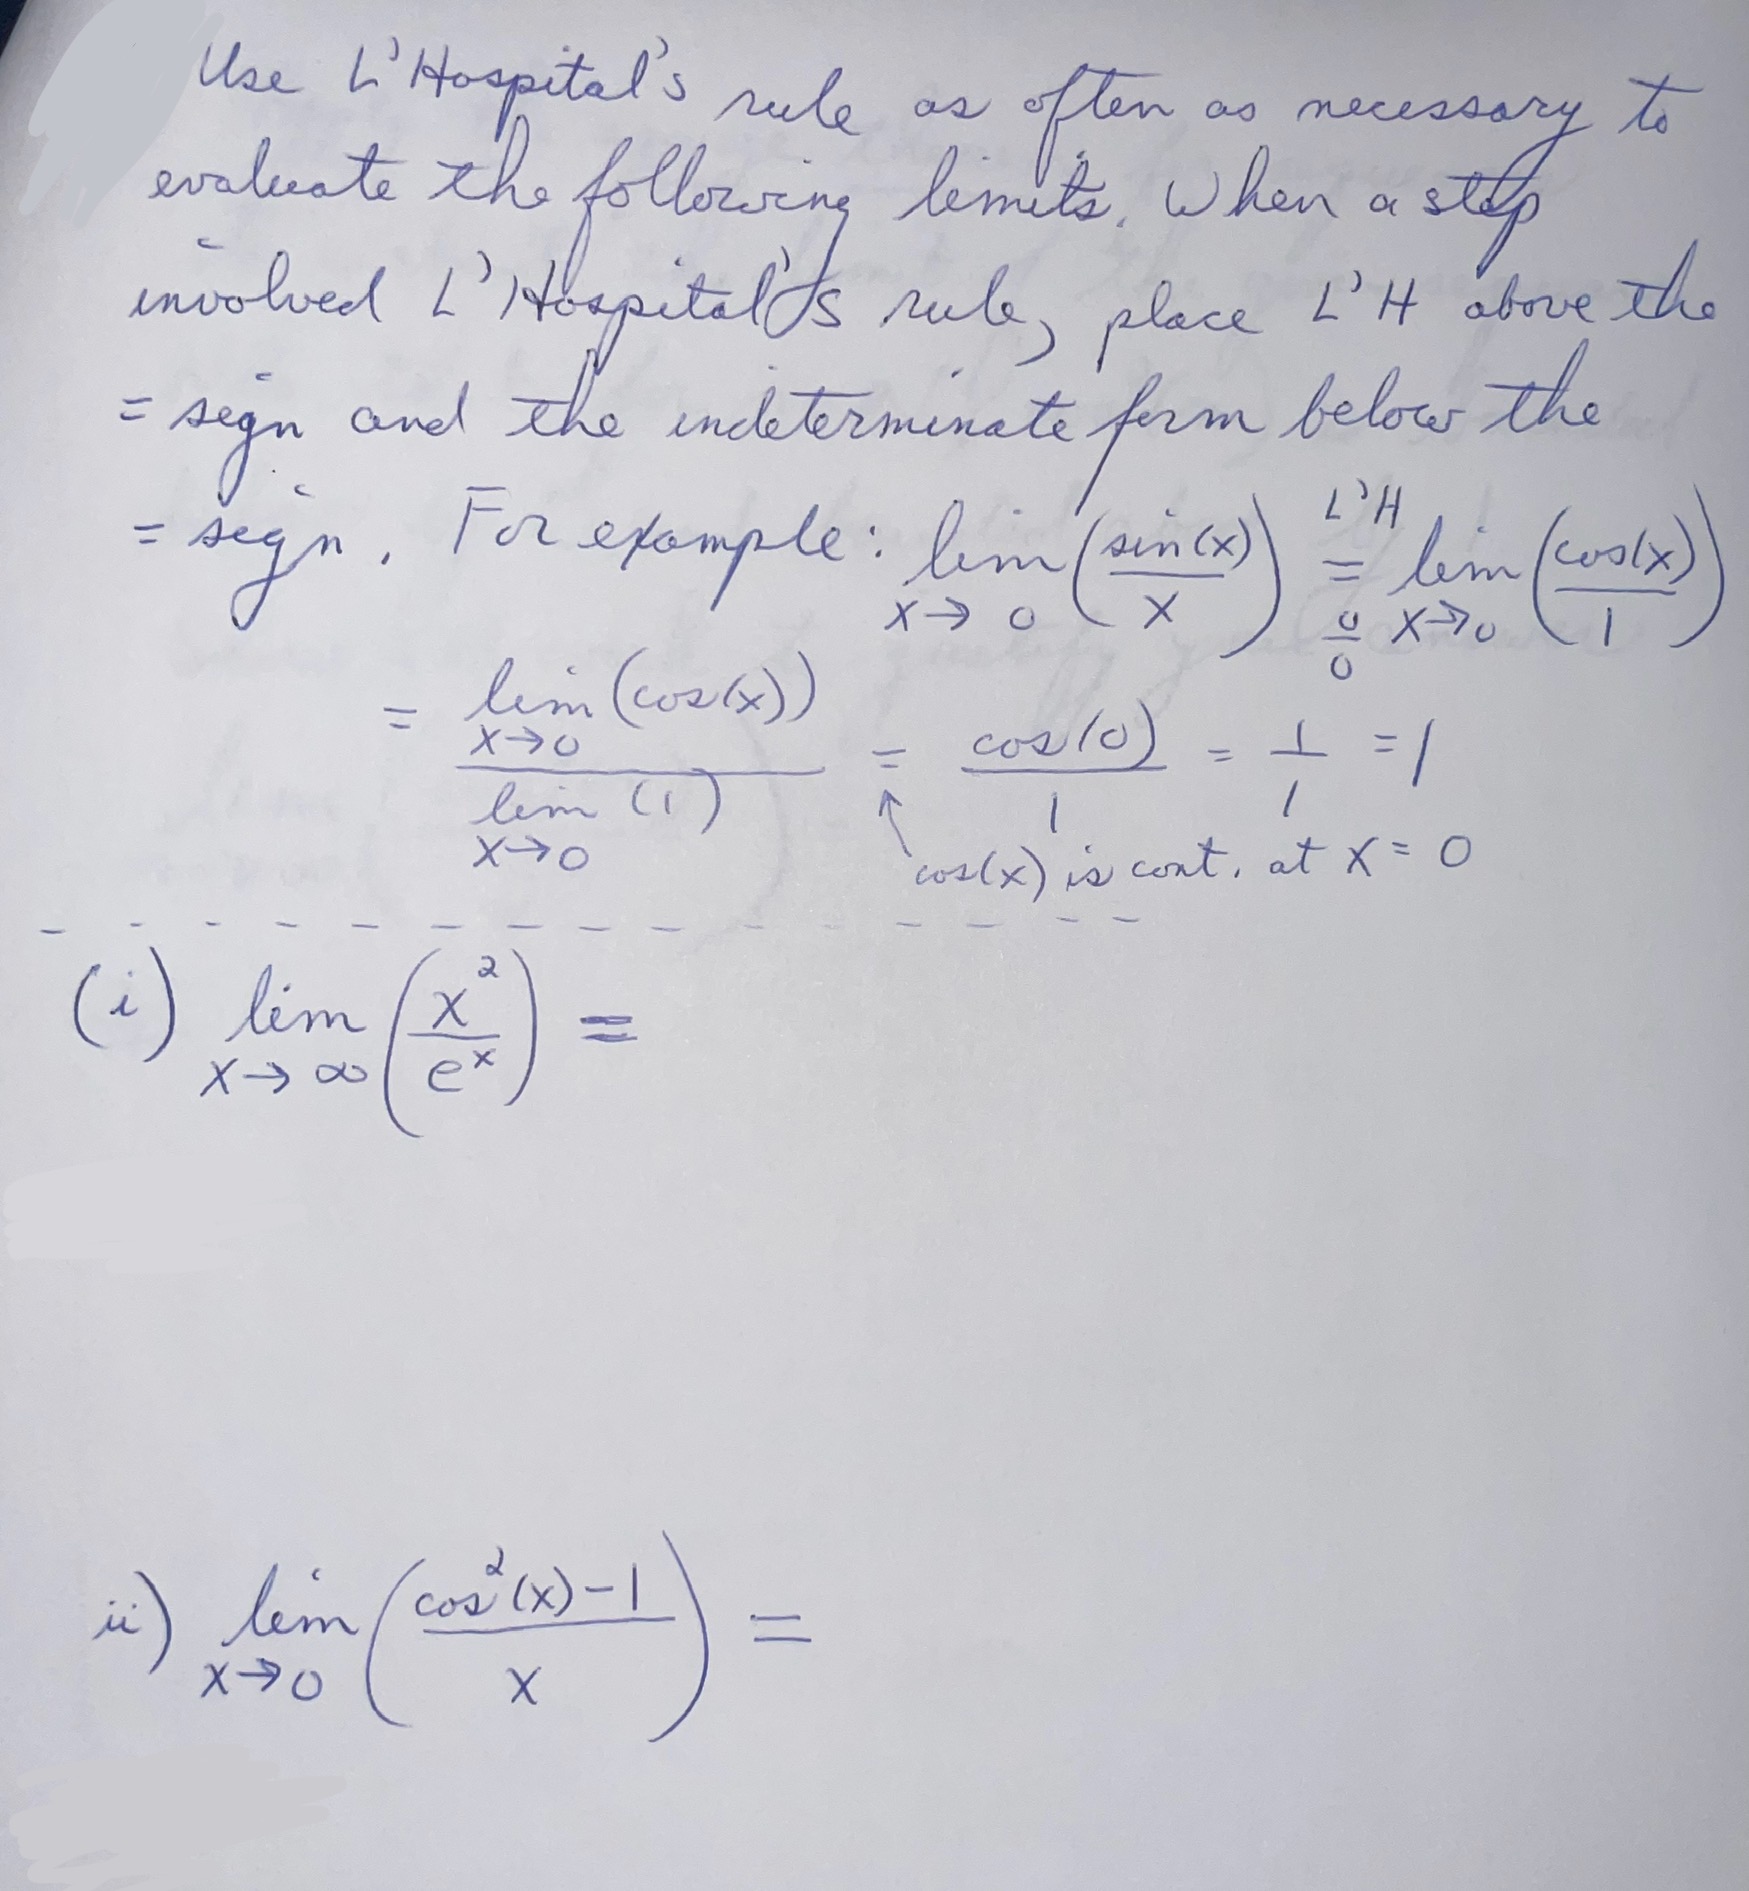 Use L'Hospital's rule as often as necessary to
evaluate the following limits. When a step
involved L'Hospital's rule, place L'H above the
= sign and the indeterminate form below the
= sign. For example: lim x→0 (sin(x)/x) L'H = 0/0 lim x→0 (cos(x)/1)
= lim x→0 (cos(x)) / lim x→0 (1) = cos(0)/1 = 1/1 = 1
cos(x) is cont. at x = 0
(i) lim x→∞ (x²/eˣ) =
ii) lim x→0 (cos²(x)-1 / x) =